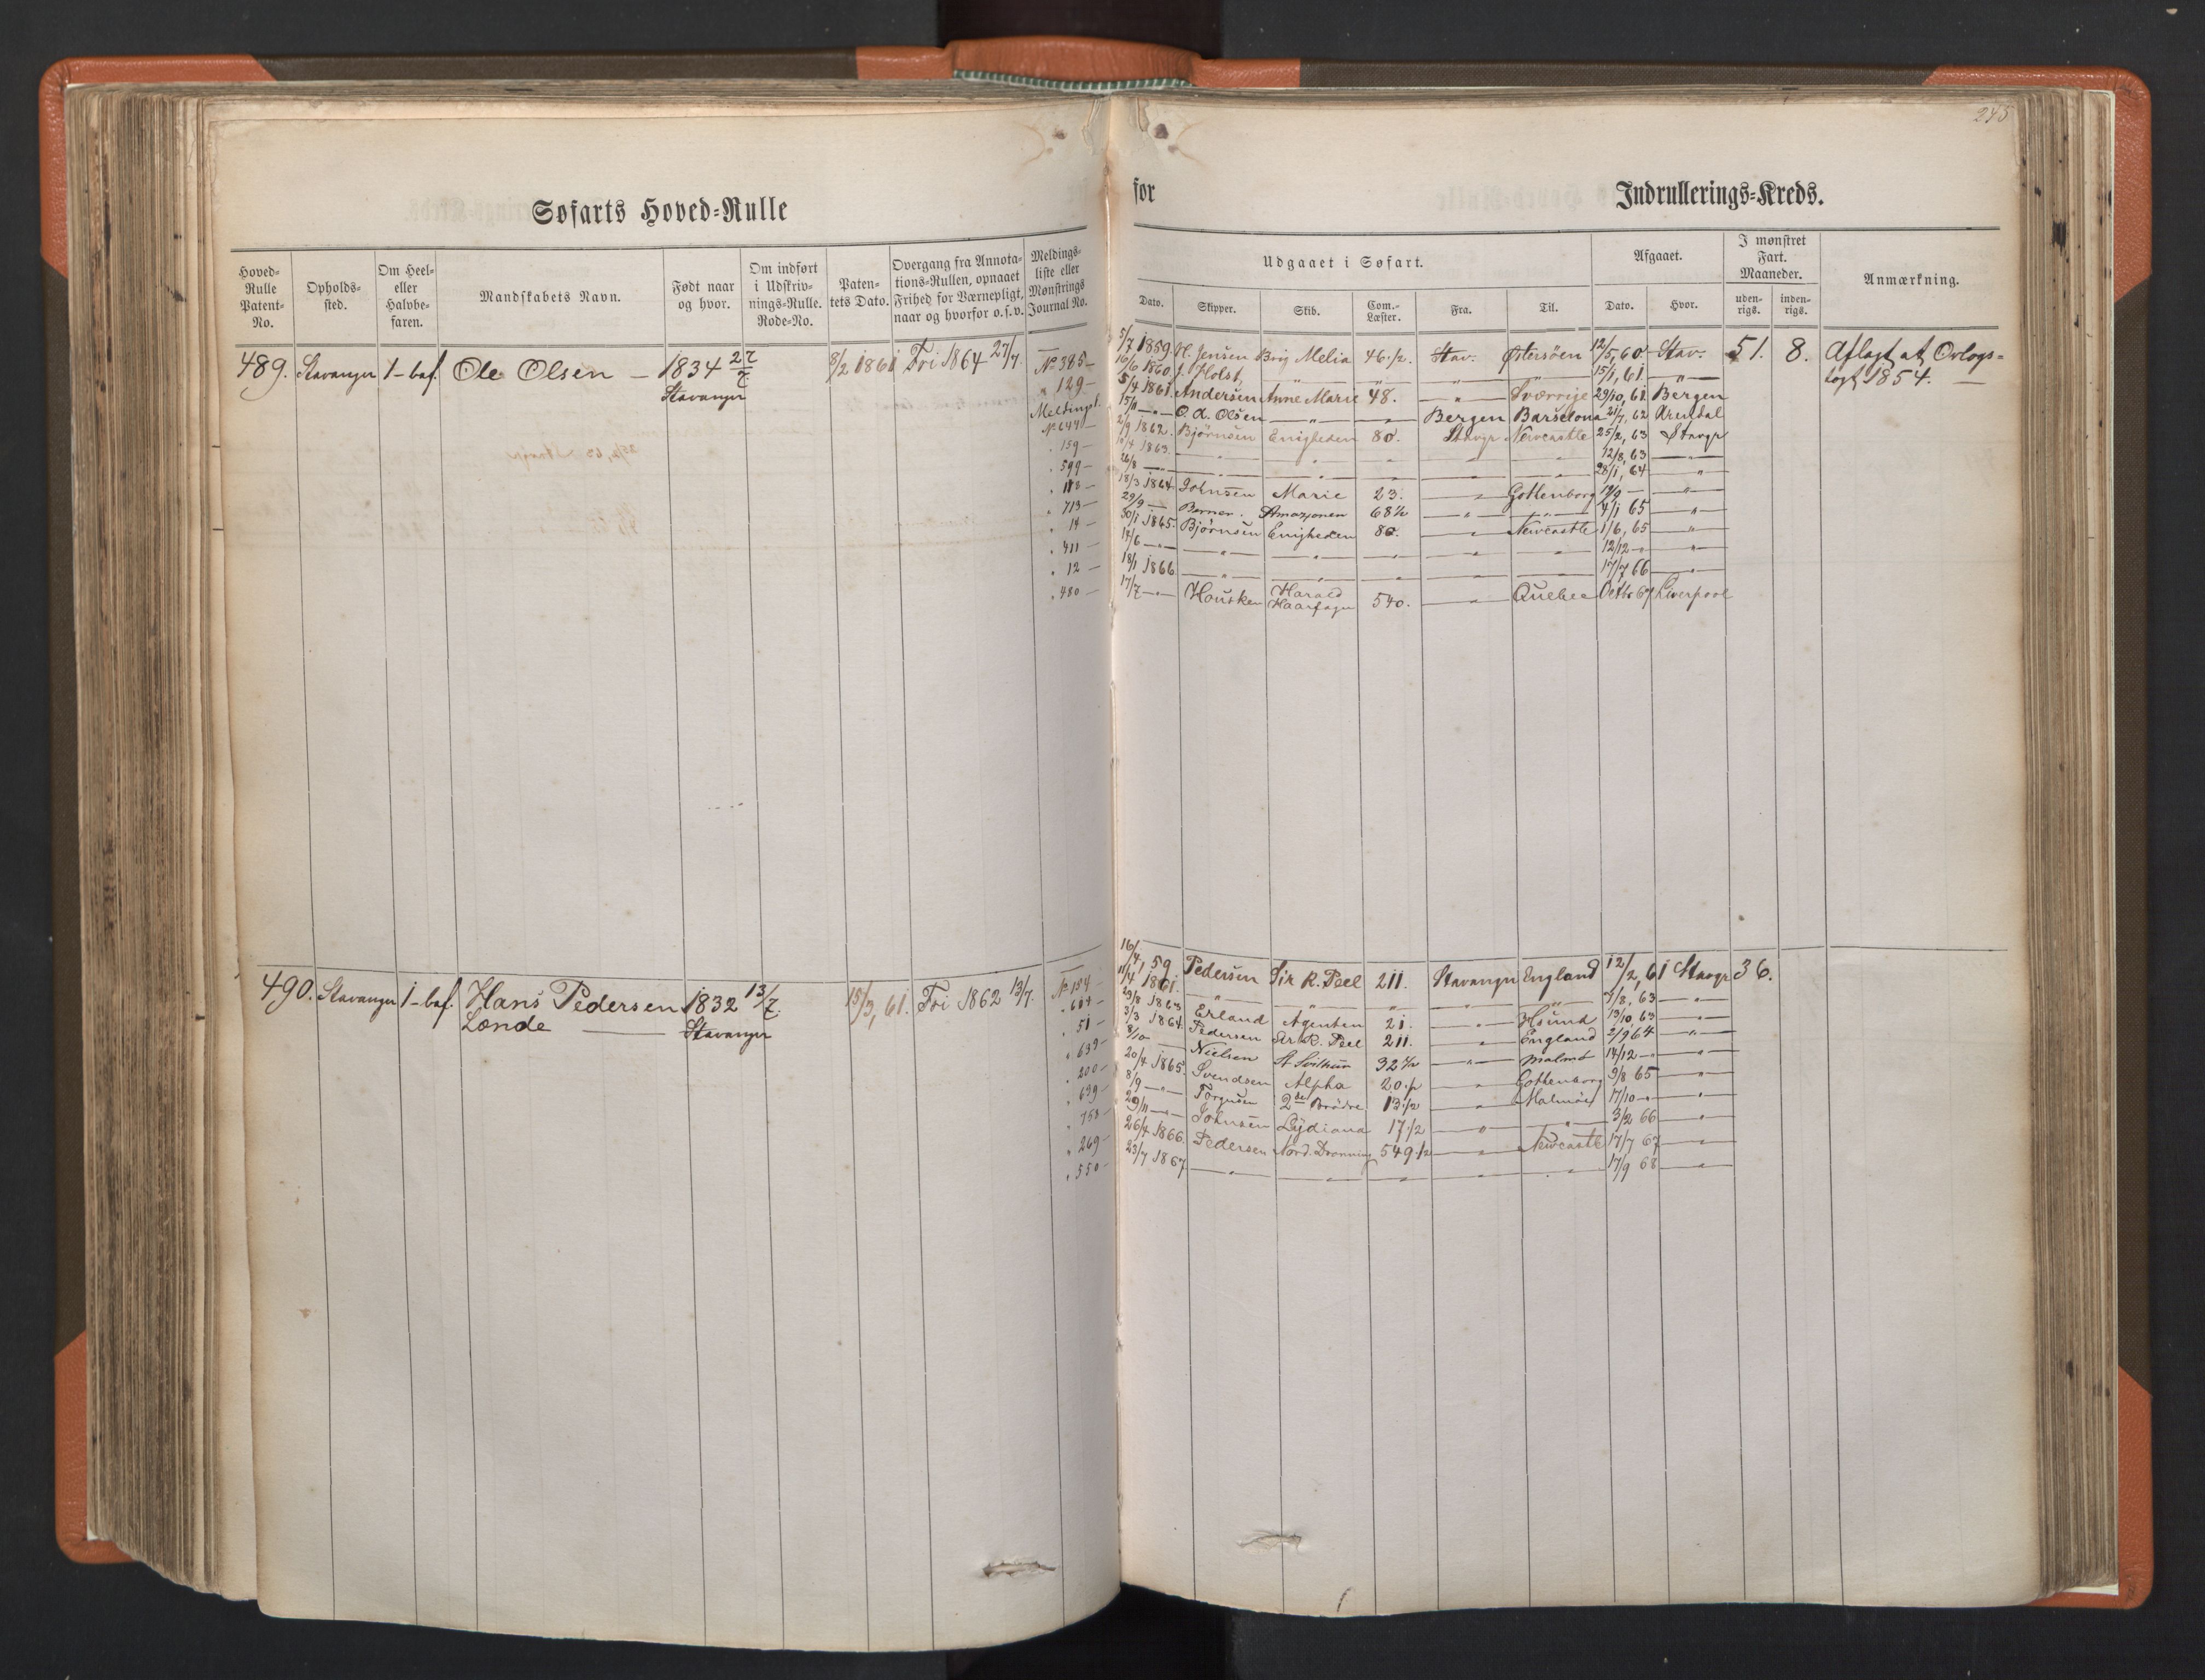 245
Søfarts Hoved=Rulle
for Indrullerings=Kreds.
Hoved=Rulle Patent=No.
Opholds=sted.
Om Heel= eller Halvbe=faren.
Mandskabets Navn.
Født naar og hvor.
Om indført i Udskriv=nings=Rulle. Rode=No.
Paten=tets Dato.
Overgang fra Annota=tions=Rullen, opnaaet Frihed for Værnepligt, naar og hvorfor o. s. v.
Meldings=liste eller Mønstrings Journal No.
Udgaaet i Søfart.
Dato. Skipper. Skib. Com.=Læster. Fra. Til.
Afgaaet.
Dato. Hvor.
I mønstret Fart. Maaneder.
uden=rigs. inden=rigs.
Anmærkning.
489. Stavanger 1-baf. Ole Olsen — 1834 27/7 Stavanger 8/2 1861 Fri 1864 27/7.
No 385— 5/7 1859. H. Jensen Brig Melia 46 1/2. Stav: Østersöen 12/5, 60 Stav: 51. 8. Aflagt at Orlogs=
togt 1854. —
" 129— 16/6 1860. J. Holst, " " " " 15/1, 61. "
Meldingsl. 5/4 1861. Andersen Anne Marie 48. " Sverrije 29/10, 61. Bergen
No 644— 15/11 —"— O. A. Olsen " " Bergen Barselona 21/7, 62 Arendal
" 159— 2/9 1862. Bjørnsen Enigheden 80. Stavgr Newcastle 25/2, 63 Stavgr
" 599— 1863. " " " " " 12/8, 63 "
" 118— 26/8 —"— " " " " " 28/1, 64 "
" 713— 18/3 1864. Johnsen Marie 23. " Gottenborg "
" 14— 29/9 — Berner. Amazonen 68 1/2 " " 4/1 65 "
" 411— 30/1 1865. Bjørnsen Enigheden 80. " Newcastle 1/6, 65 "
" 12— 14/6 —"— " " " " " 12/12 —"— "
" 480— 18/1 1866 " " " " " 17/7 66 "
17/7 —"— Housken Harald Haarfagr 540. " Quebec Octbr 67 Liverpool
490. Stavanger 1-baf. Hans Pedersen 1832 13/7. 15/3, 61. Fri 1862 13/7.
Lænde — Stavanger
No 154— 16/4, 59. Pedersen Sir R. Peel 211. Stavanger England 12/2, 61 Stavgr 36.
11/4 1861. " " " " " 3/8, 63 "
" 51— 29/8 1863 Erland Agenten 21. " 13/10 63 "
" 639— 3/3 1864. Pedersen Sir R. Peel 211. " England 2/9 64 "
" 200— 8/10 — Nielsen St Svithun 32 1/2 " Malmö 14/12 —"— "
" 639— 20/4 1865. Svendsen Alpha 20 1/2 " Gottenborg 9/8 65 "
" 753— 8/9 —"— Torgersen 2de Brödre 13 1/2 " Malmöe 17/10 —"— "
" 269— 29/11 —"— Johnsen Lydiana 17 1/2 " " 3/2 66 "
" 550— 26/4 1866. Pedersen Nord. Dronning 549 1/2 " Newcastle 17/7 67 "
23/7 1867. " " " " " 17/9 68 "